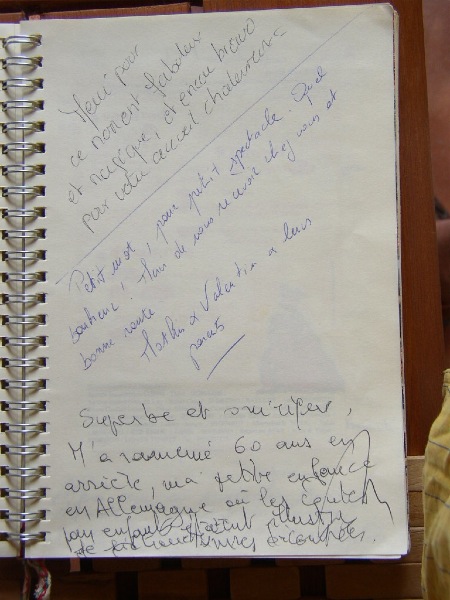 Merci pour
ce moment fabuleux
et magique, et encore bravo
pour votre accueil chaleureux
Petit mot, pour petit spectacle. Quel
bonheur! de vous recevoir chez vous et
bonne route
Mathis & Valentin & leurs
parents
Superbe et onirique,
M'a ramené 60 ans en
arrière, ma petite enfance
en Allemagne où les contes
pour enfants étaient illustrés
de découpées.